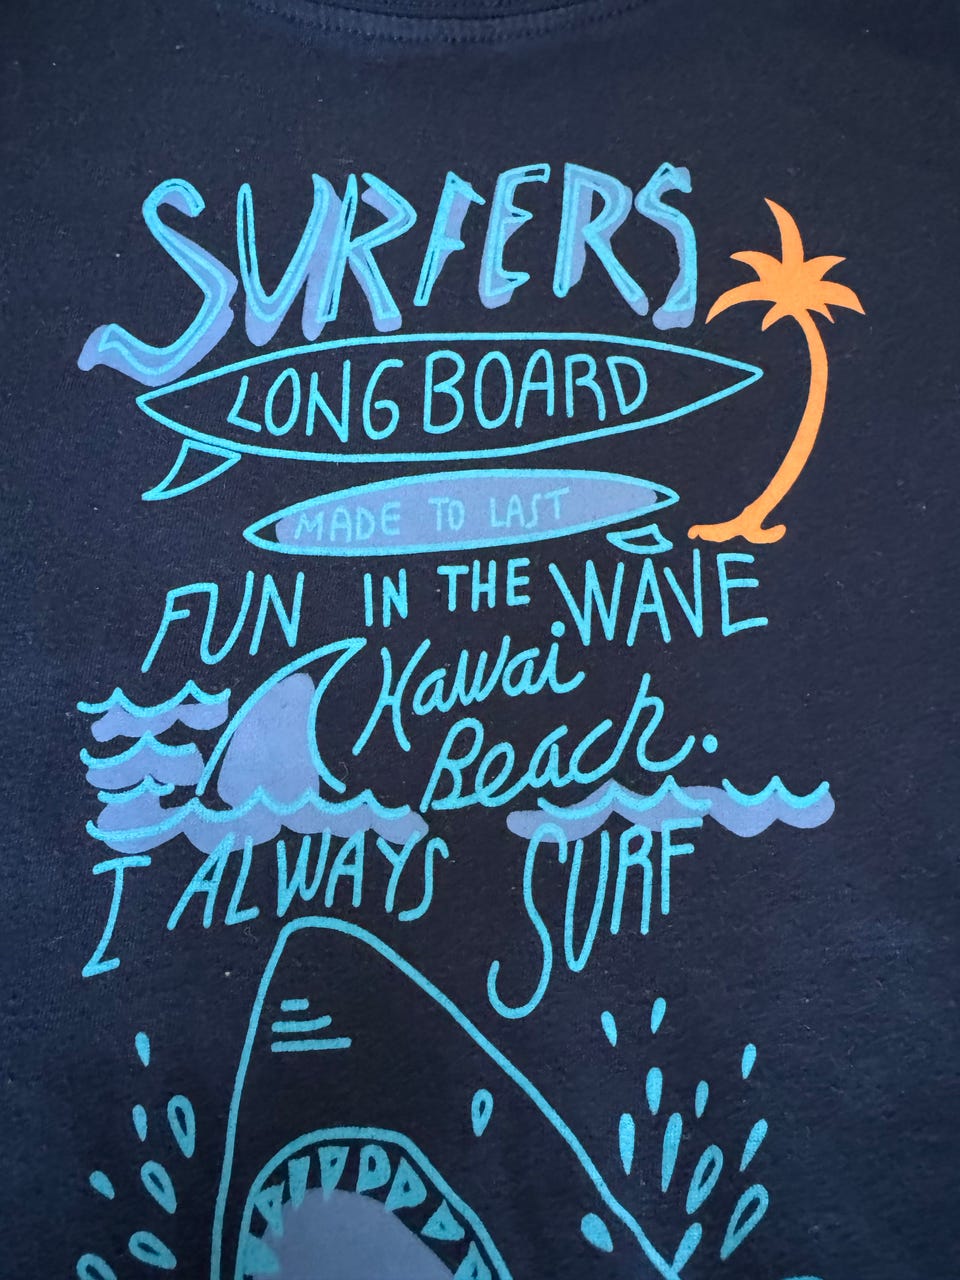 SURFERS
LONGBOARD
MADE TO LAST
FUN IN THE WAVE
Hawai
Beach.
I ALWAYS SURF